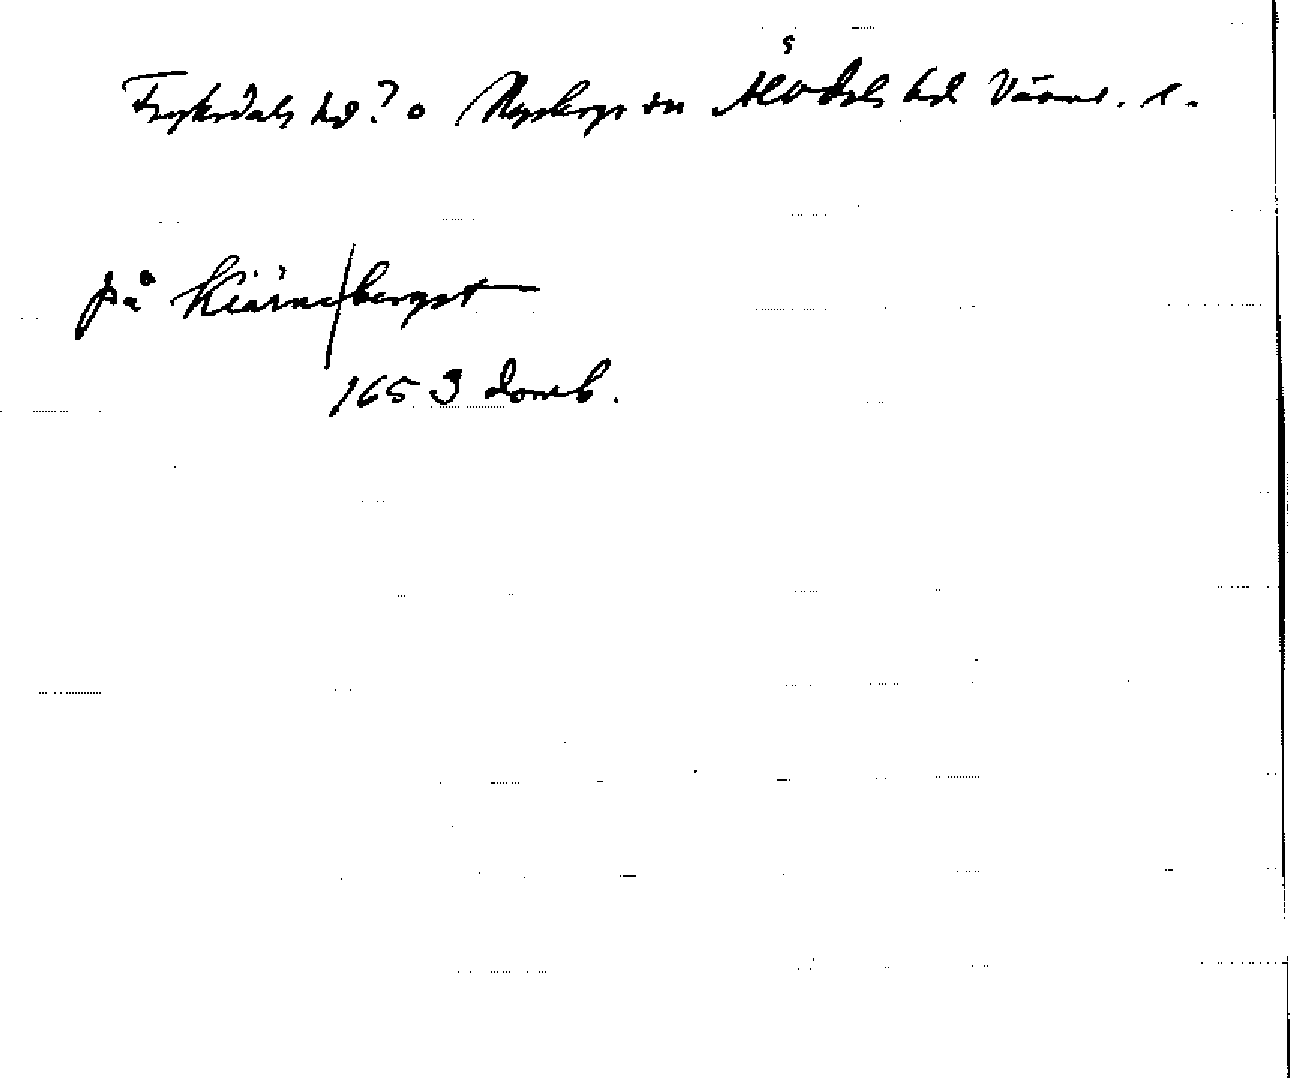 Fryksdals hd? o Nyskoga sn Älvdals hd Värml. l.
på Kiärne/bergst
1653 domb.